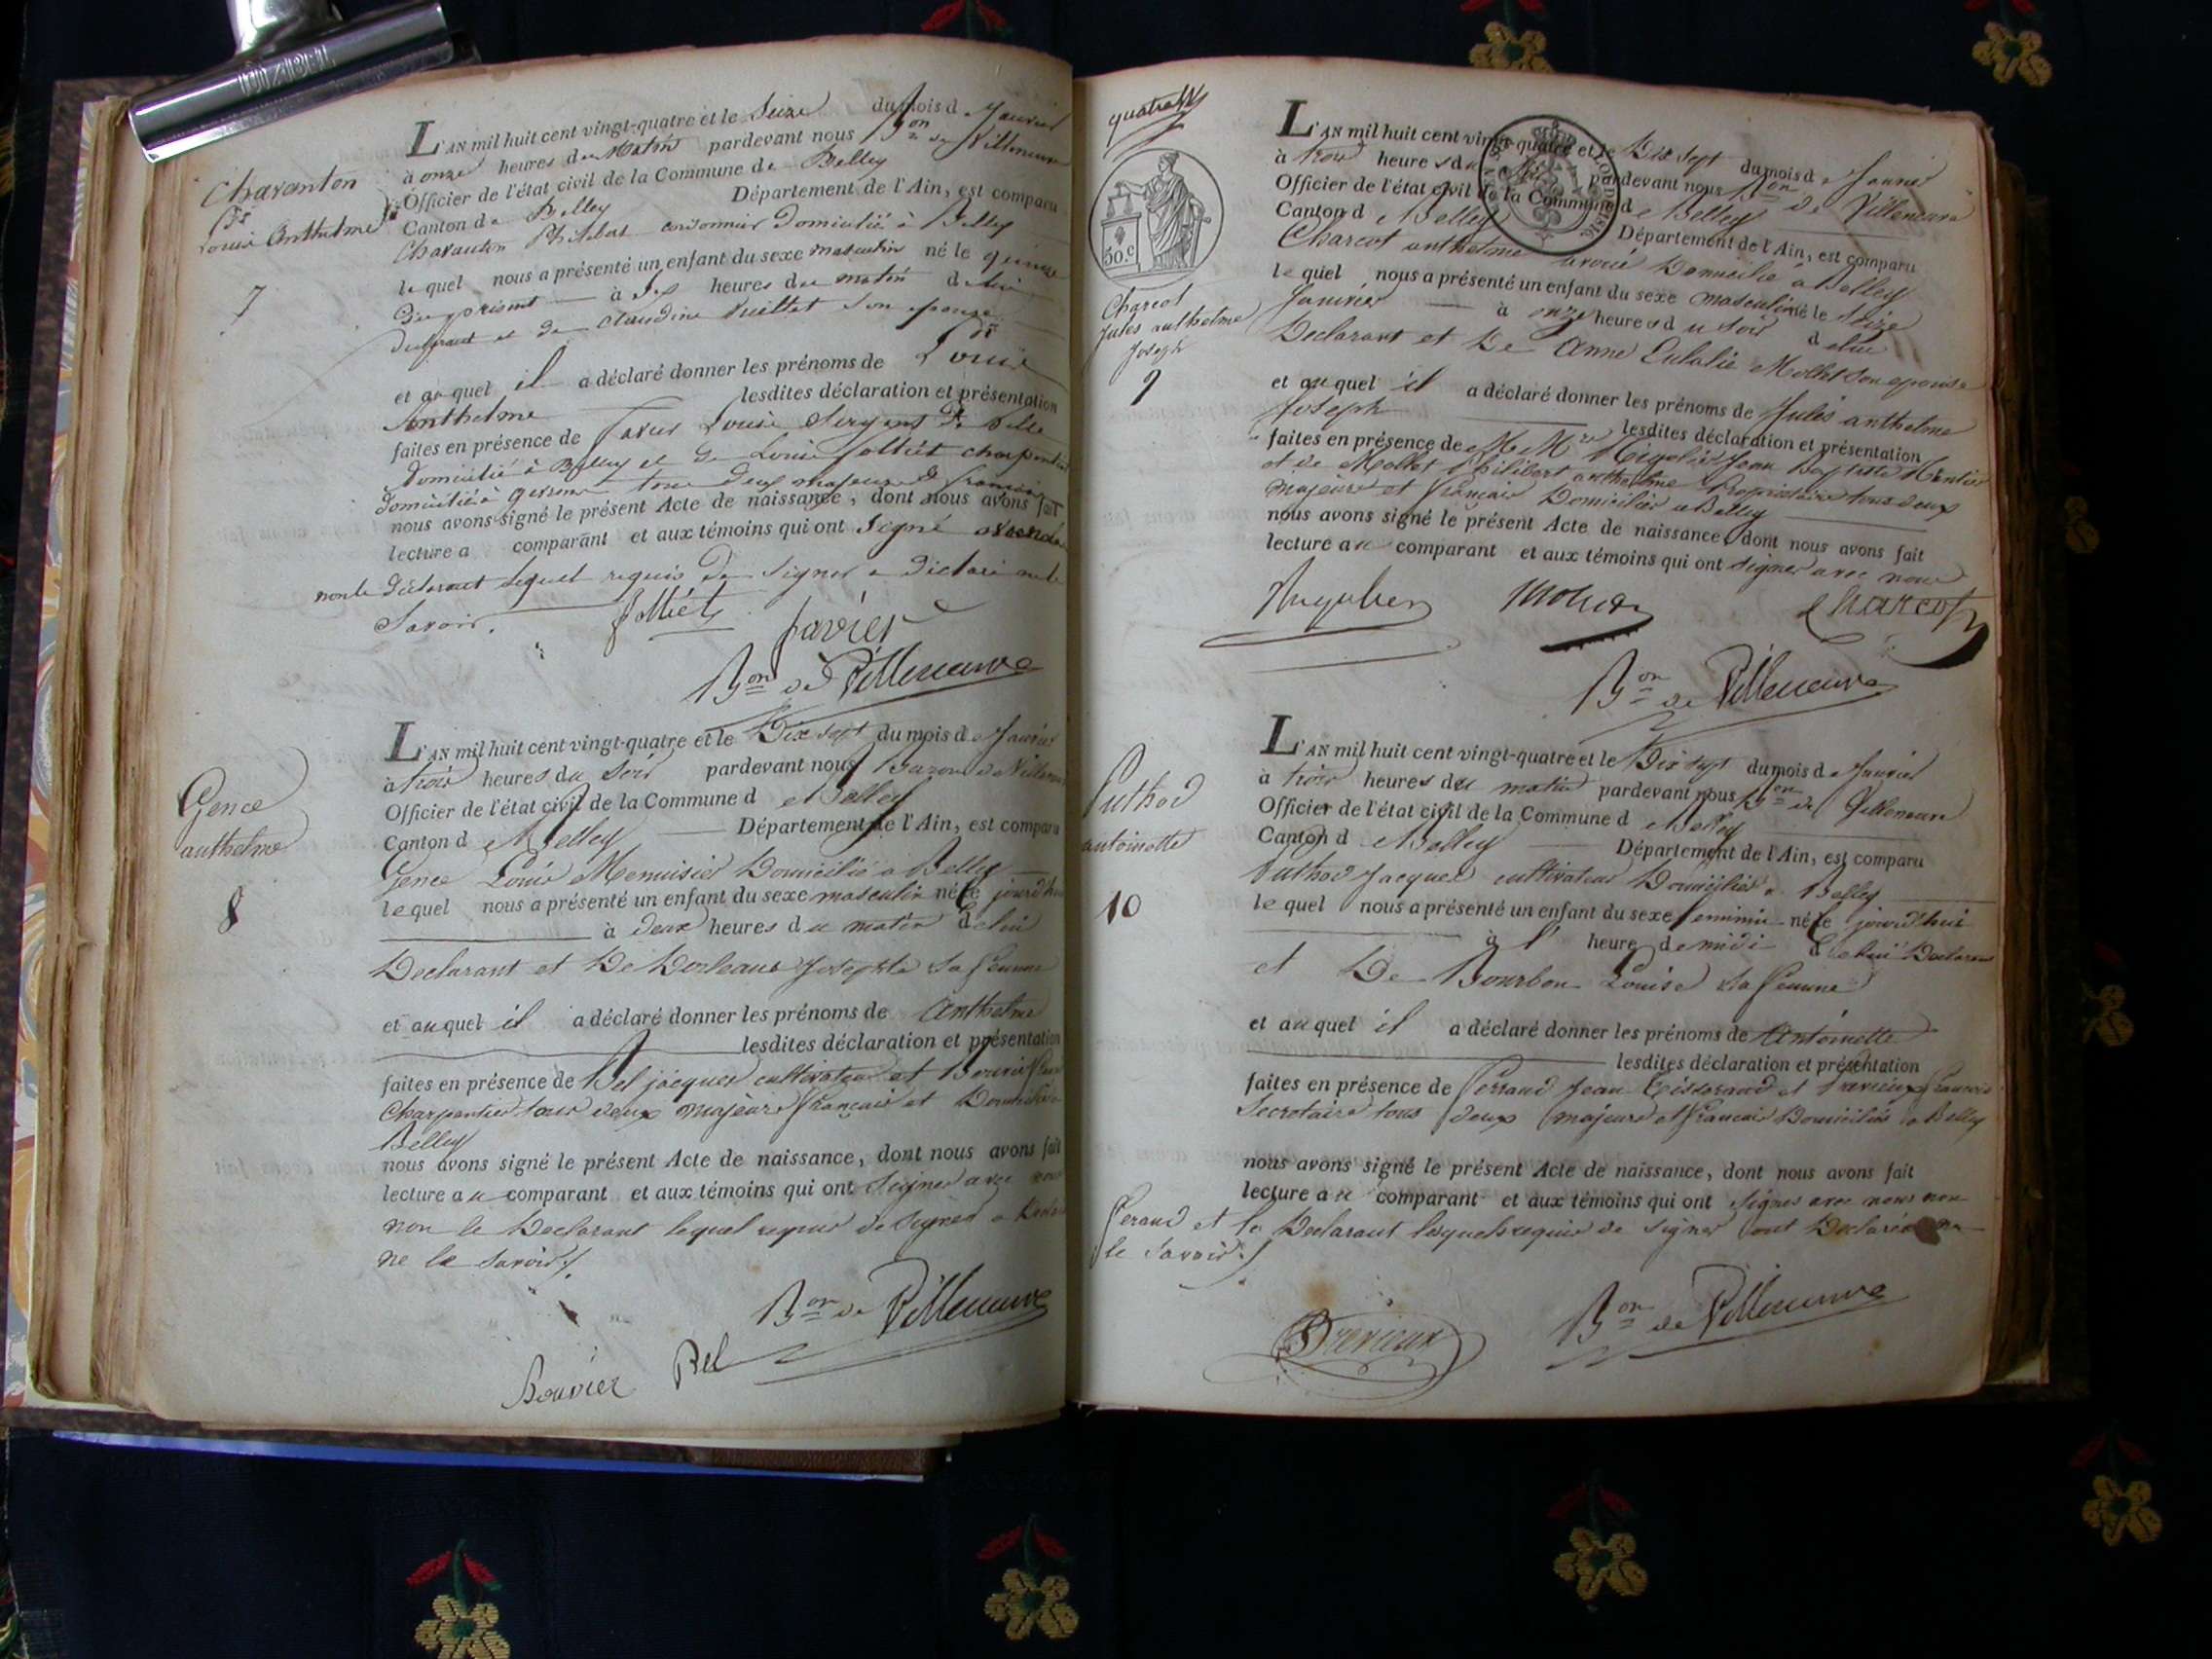 Charanton
Louis Anthelme
7
L'AN mil huit cent vingt-quatre et le Seize du mois de Janvier
à onze heures du Matin pardevant nous Bon de Villeneuve
Officier de l'état civil de la Commune de Belley
Canton de Belley Département de l'Ain, est comparu
Charanton Philibert cordonnier Domicilié à Belley
lequel nous a présenté un enfant du sexe masculin né le quinze
du présent à heures du matin de lui
Déclarant et de Claudine son épouse
et auquel il a déclaré donner les prénoms de Louis
Anthelme lesdites déclaration et présentation
faites en présence de Louis Sergent De Ville
domicilié à Belley et de Louis Jolliet charpentier
domicilié à tous deux majeurs & français
nous avons signé le présent Acte de naissance, dont nous avons fait
lecture au comparant et aux témoins qui ont Signé avec nous
non le Déclarant lequel requis De Signer a Déclaré ne le
Savoir.
Jolliet Javier
Bon de Villeneuve
Gence
anthelme
8
L'AN mil huit cent vingt-quatre et le Dix sept du mois de Janvier
à trois heures du Soir pardevant nous Baron de Villeneuve
Officier de l'état civil de la Commune de Belley
Canton de Belley Département de l'Ain, est comparu
Gence Louis Menuisier Domicilié a Belley
lequel nous a présenté un enfant du sexe masculin né le jourd'hui
à deux heures du matin de lui
Declarant et De Josephte sa femme
et auquel il a déclaré donner les prénoms de Anthelme
lesdites déclaration et présentation
faites en présence de Bel jacques cultivateur et Bouvier
Charpentier tous deux majeurs français et Domiciliés a
Belley
nous avons signé le présent Acte de naissance, dont nous avons fait
lecture au comparant et aux témoins qui ont Signer avec nous
non le Declarant lequel requis de Signer a Declaré
ne le Savoir ./.
Bon de Villeneuve
Bouvier Bel
quatre
50.c
Charcot
Jules anthelme
Joseph
9
L'AN mil huit cent vingt-quatre et le Dix sept du mois de Janvier
à trois heures du Soir pardevant nous Bon de Villeneuve
Officier de l'état civil de la Commune de Belley
Canton de Belley Département de l'Ain, est comparu
Charcot anthelme avoué Domicilié a Belley
lequel nous a présenté un enfant du sexe masculin né le Seize
Janvier à onze heures du Soir de lui
Declarant et De Anne Eulalie Mollet son epouse
et auquel il a déclaré donner les prénoms de Jules anthelme
Joseph lesdites déclaration et présentation
faites en présence de Jean Baptiste Rentier
et de Mollet Philibert anthelme Propriétaire tous deux
majeurs et français Domiciliés a Belley
nous avons signé le présent Acte de naissance, dont nous avons fait
lecture au comparant et aux témoins qui ont signer avec nous
Mollet Charcot
Bon de Villeneuve
Puthod
antoinette
10
L'AN mil huit cent vingt-quatre et le Dix sept du mois de Janvier
à trois heures du matin pardevant nous Bon de Villeneuve
Officier de l'état civil de la Commune de Belley
Canton de Belley Département de l'Ain, est comparu
Puthod Jacques cultivateur Domicilié a Belley
lequel nous a présenté un enfant du sexe feminin né le jourd'hui
à l' heure de midi de lui Declarant
et De Bourbon Louise sa femme
et auquel il a déclaré donner les prénoms de Antoinette
lesdites déclaration et présentation
faites en présence de Perraud Jean Tisserand et Trevieux francois
Secretaire tous deux majeurs et francais Domiciliés a Belley
nous avons signé le présent Acte de naissance, dont nous avons fait
lecture au comparant et aux témoins qui ont signer avec nous non
Peraud et le Declarant lesquels requis de signer ont Declarés ne
le savoir ./.
Trevieux Bon de Villeneuve